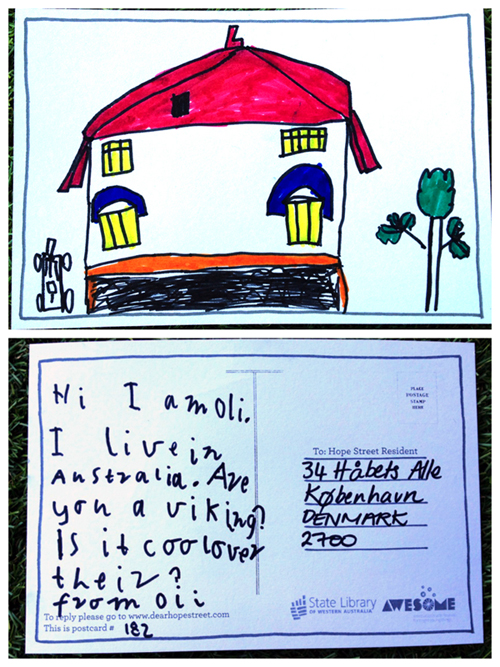 Hi I am Oli.
I live in
Australia. Are
you a viking?
Is it cool over
their?
from Oli
To reply please go to www.dearhopestreet.com
This is postcard # 182
PLACE
POSTAGE
STAMP
HERE
To: Hope Street Resident
34 Håbets Alle
København
DENMARK
2700
State Library
OF WESTERN AUSTRALIA
AWESOME